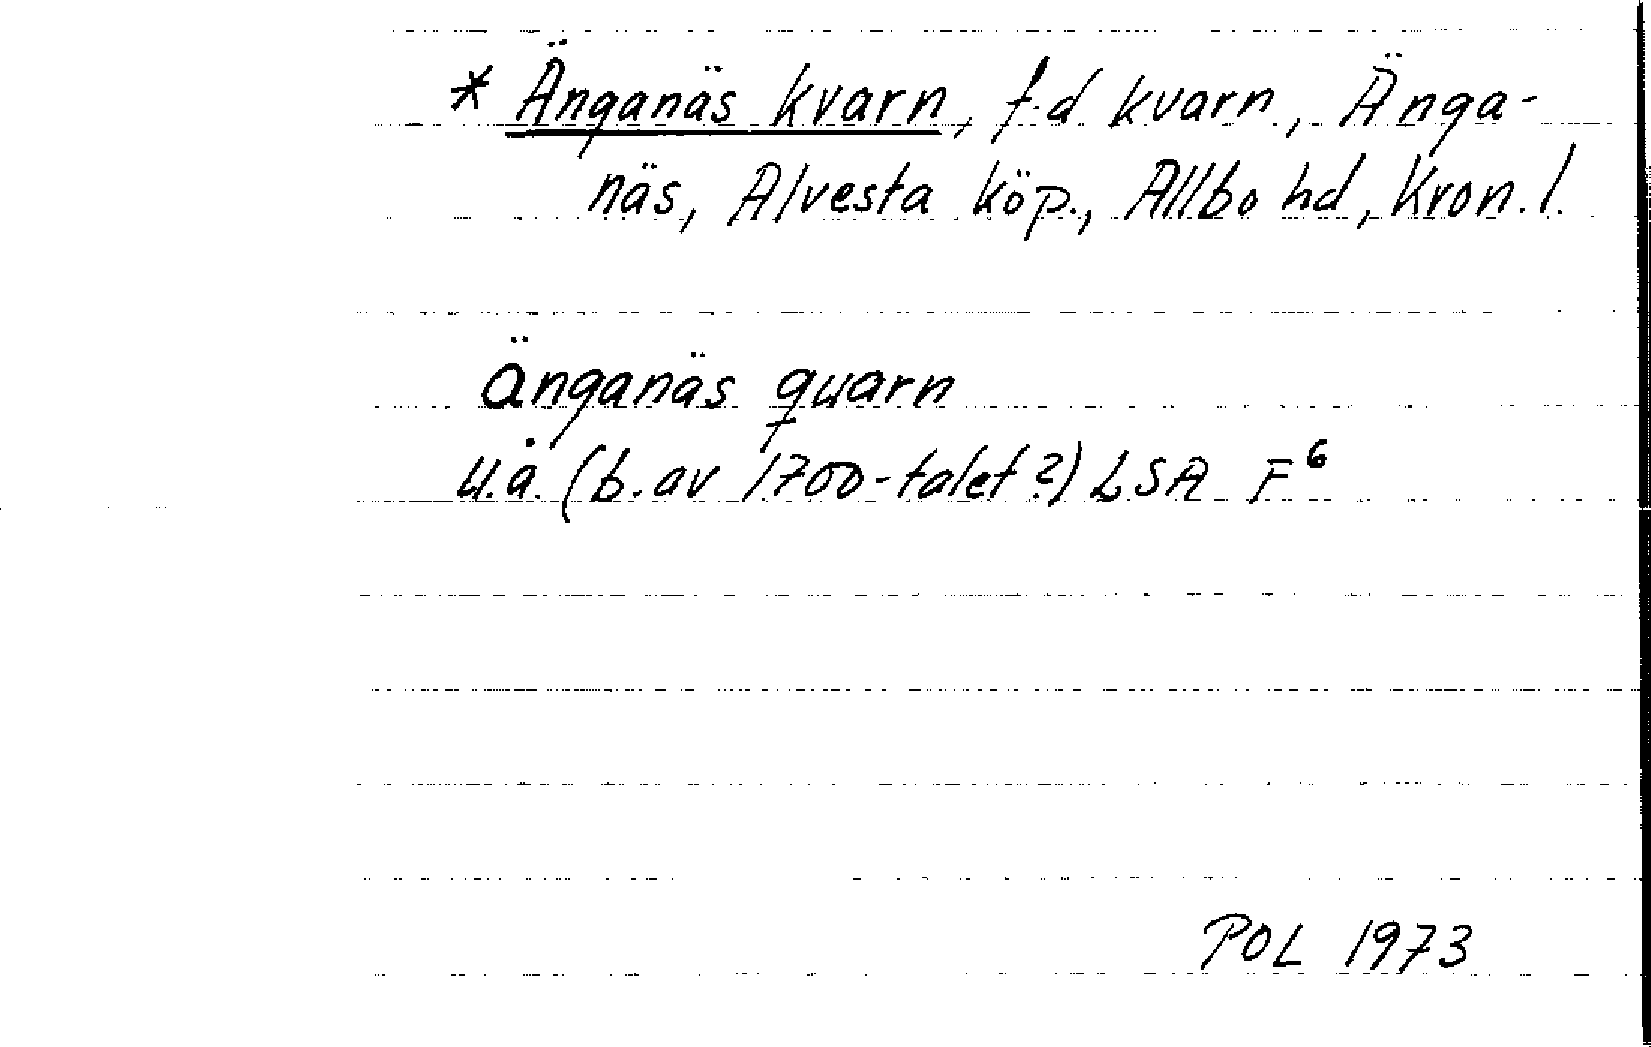 * Änganäs kvarn, f.d kvarn, Änga-
näs, Alvesta köp., Allbo hd, Kron. l.
änganäs quarn
u.å. (b. av 1700-talet?) LSA F⁶
POL 1973